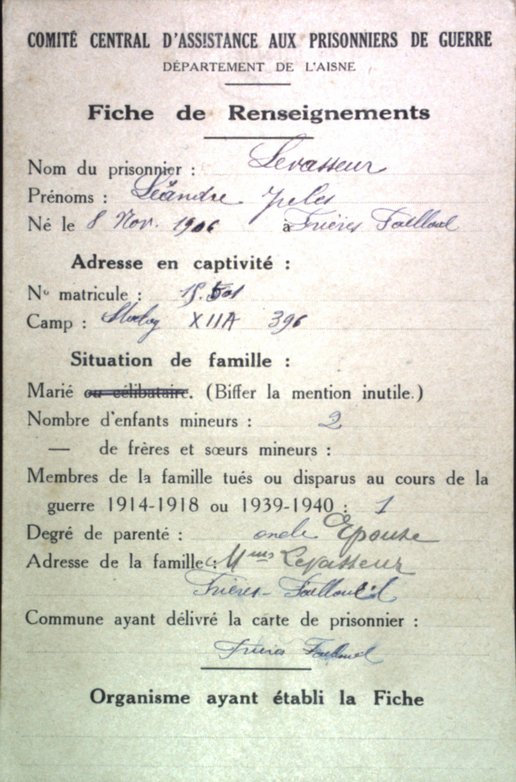 COMITÉ CENTRAL D'ASSISTANCE AUX PRISONNIERS DE GUERRE
DÉPARTEMENT DE L'AISNE
Fiche de Renseignements
Nom du prisonnier : Levasseur
Prénoms : Léandre Jules
Né le 8 Nov. 1906 à Frières Faillouël
Adresse en captivité :
N° matricule :
Camp : Stalag XIIA 396
Situation de famille :
Marié ou célibataire. (Biffer la mention inutile.)
Nombre d'enfants mineurs : 2
— de frères et sœurs mineurs :
Membres de la famille tués ou disparus au cours de la
guerre 1914-1918 ou 1939-1940 : 1
Degré de parenté : oncle Epouse
Adresse de la famille : Mme Levasseur
Frières-Faillouël
Commune ayant délivré la carte de prisonnier :
Frières Faillouël
Organisme ayant établi la Fiche